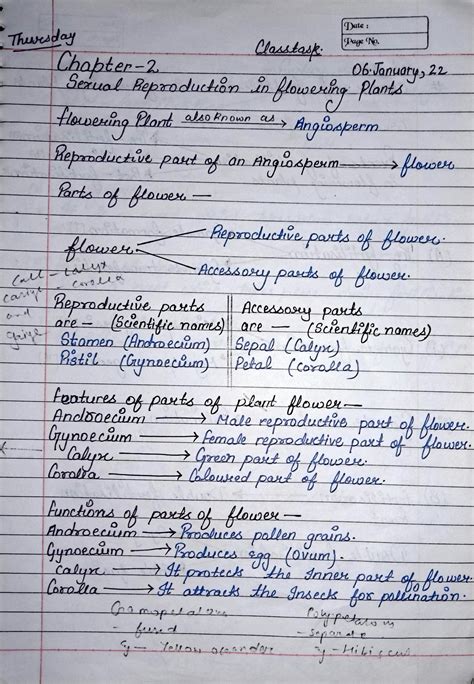 Thursday
Date :
Page No.
Classtask
Chapter-2
06 January, 22
Sexual Reproduction in flowering Plants
flowering Plant also known as → Angiosperm
Reproductive part of an Angiosperm → flower
Parts of flower —
Reproductive parts of flower.
flower
Accessory parts of flower.
Call - calyx
corolla
and
Reproductive parts
are - (Scientific names)
Stamen (Androecium)
Pistil (Gynoecium)
Accessory parts
are — (Scientific names)
Sepal (Calyx)
Petal (Corolla)
Features of parts of plant flower —
Androecium → Male reproductive part of flower.
Gynoecium → Female reproductive part of flower.
Calyx → Green part of flower.
Corolla → Coloured part of flower.
Functions of parts of flower —
Androecium → Produces pollen grains.
Gynoecium → Produces egg (Ovum).
Calyx → It protects the Inner part of flower
Corolla → It attracts the Insects for pollination.
- fused
Eg - Yellow oleander
Polypetalous
- separate
Eg - Hibiscus